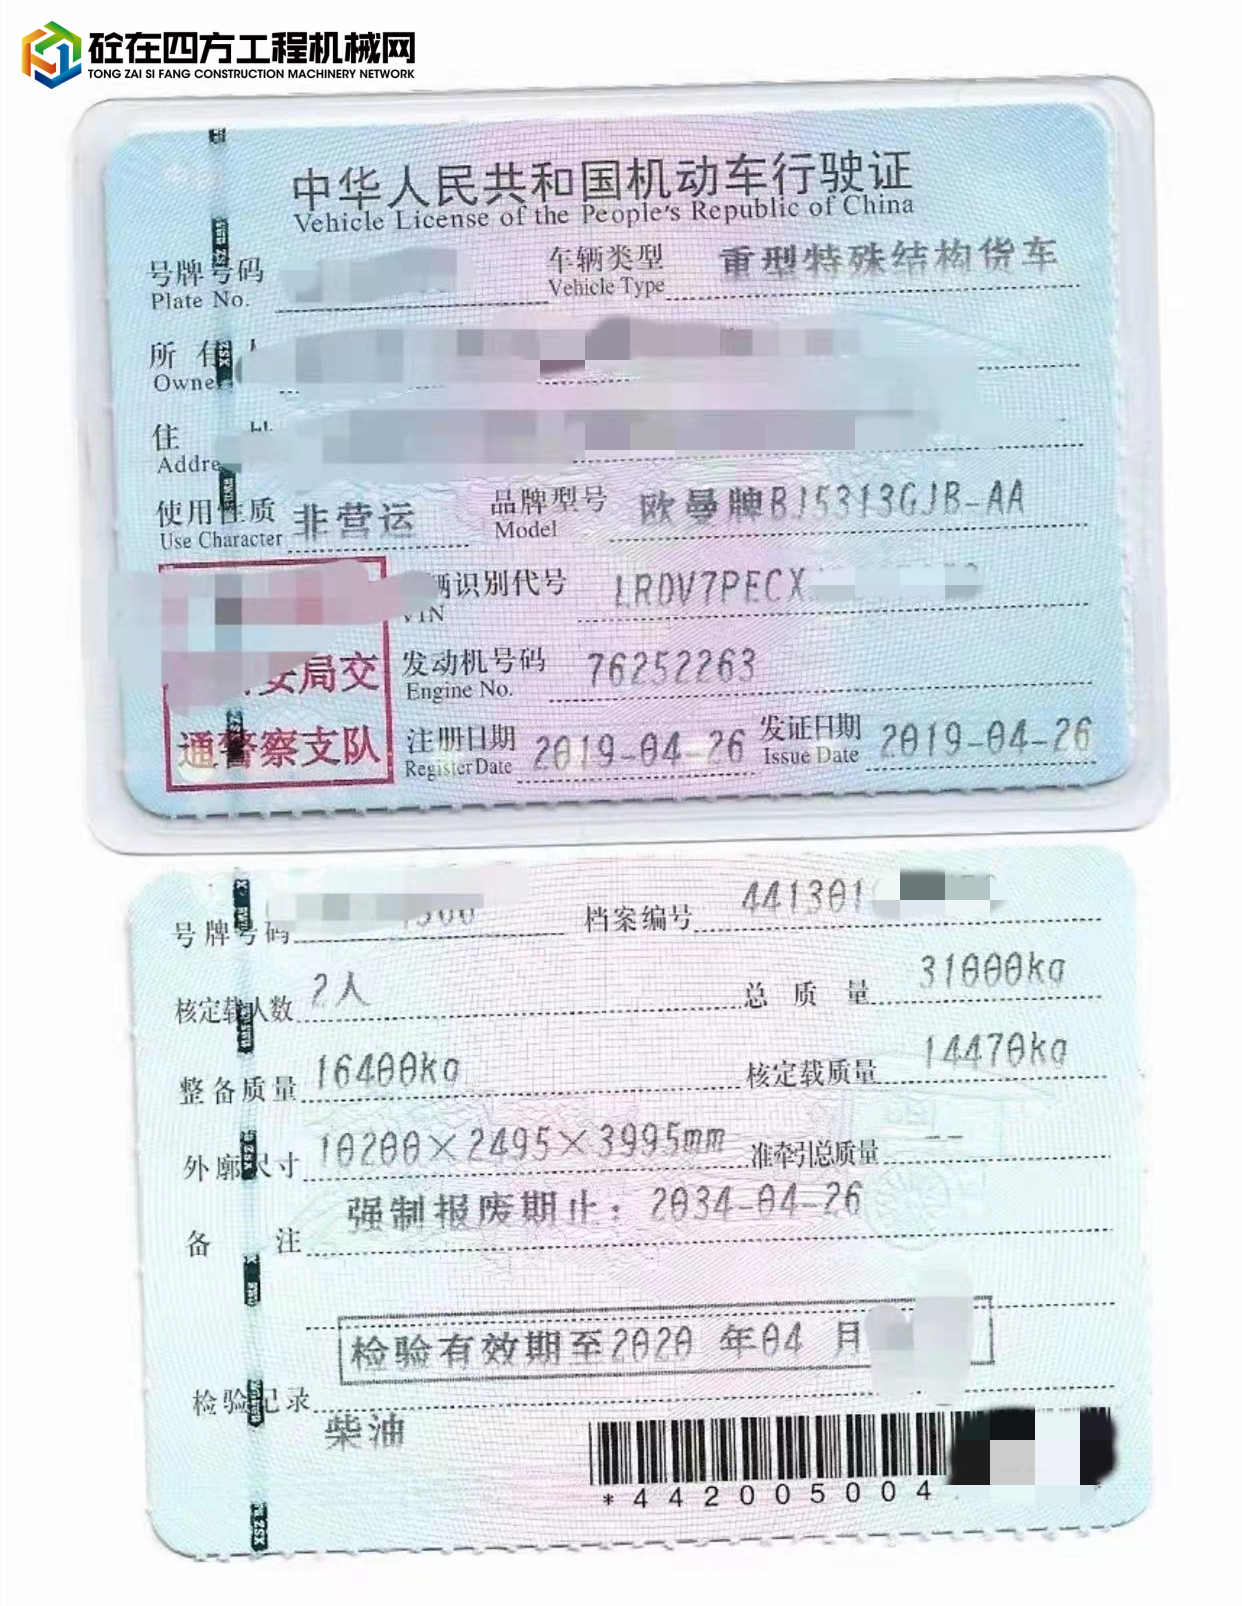 砼在四方工程机械网
TONG ZAI SI FANG CONSTRUCTION MACHINERY NETWORK
中华人民共和国机动车行驶证
Vehicle License of the People's Republic of China
号牌号码 车辆类型 重型特殊结构货车
Plate No. Vehicle Type
所有
Owne
住
Addre
使用性质 非营运 品牌型号 欧曼牌BJ5313GJB-AA
Use Character Model
辆识别代号 LRDV7PECX
VIN
局交
通警察支队
发动机号码 76252263
Engine No.
注册日期 2019-04-26 发证日期 2019-04-26
Register Date Issue Date
号牌号码 档案编号 441301
核定载人数 2人 总质量 31000kg
整备质量 16400kg 核定载质量 14470kg
外廓尺寸 10200×2495×3995mm 准牵引总质量 --
备注 强制报废期止：2034-04-26
检验有效期至2020年04月
检验记录
柴油
*442005004